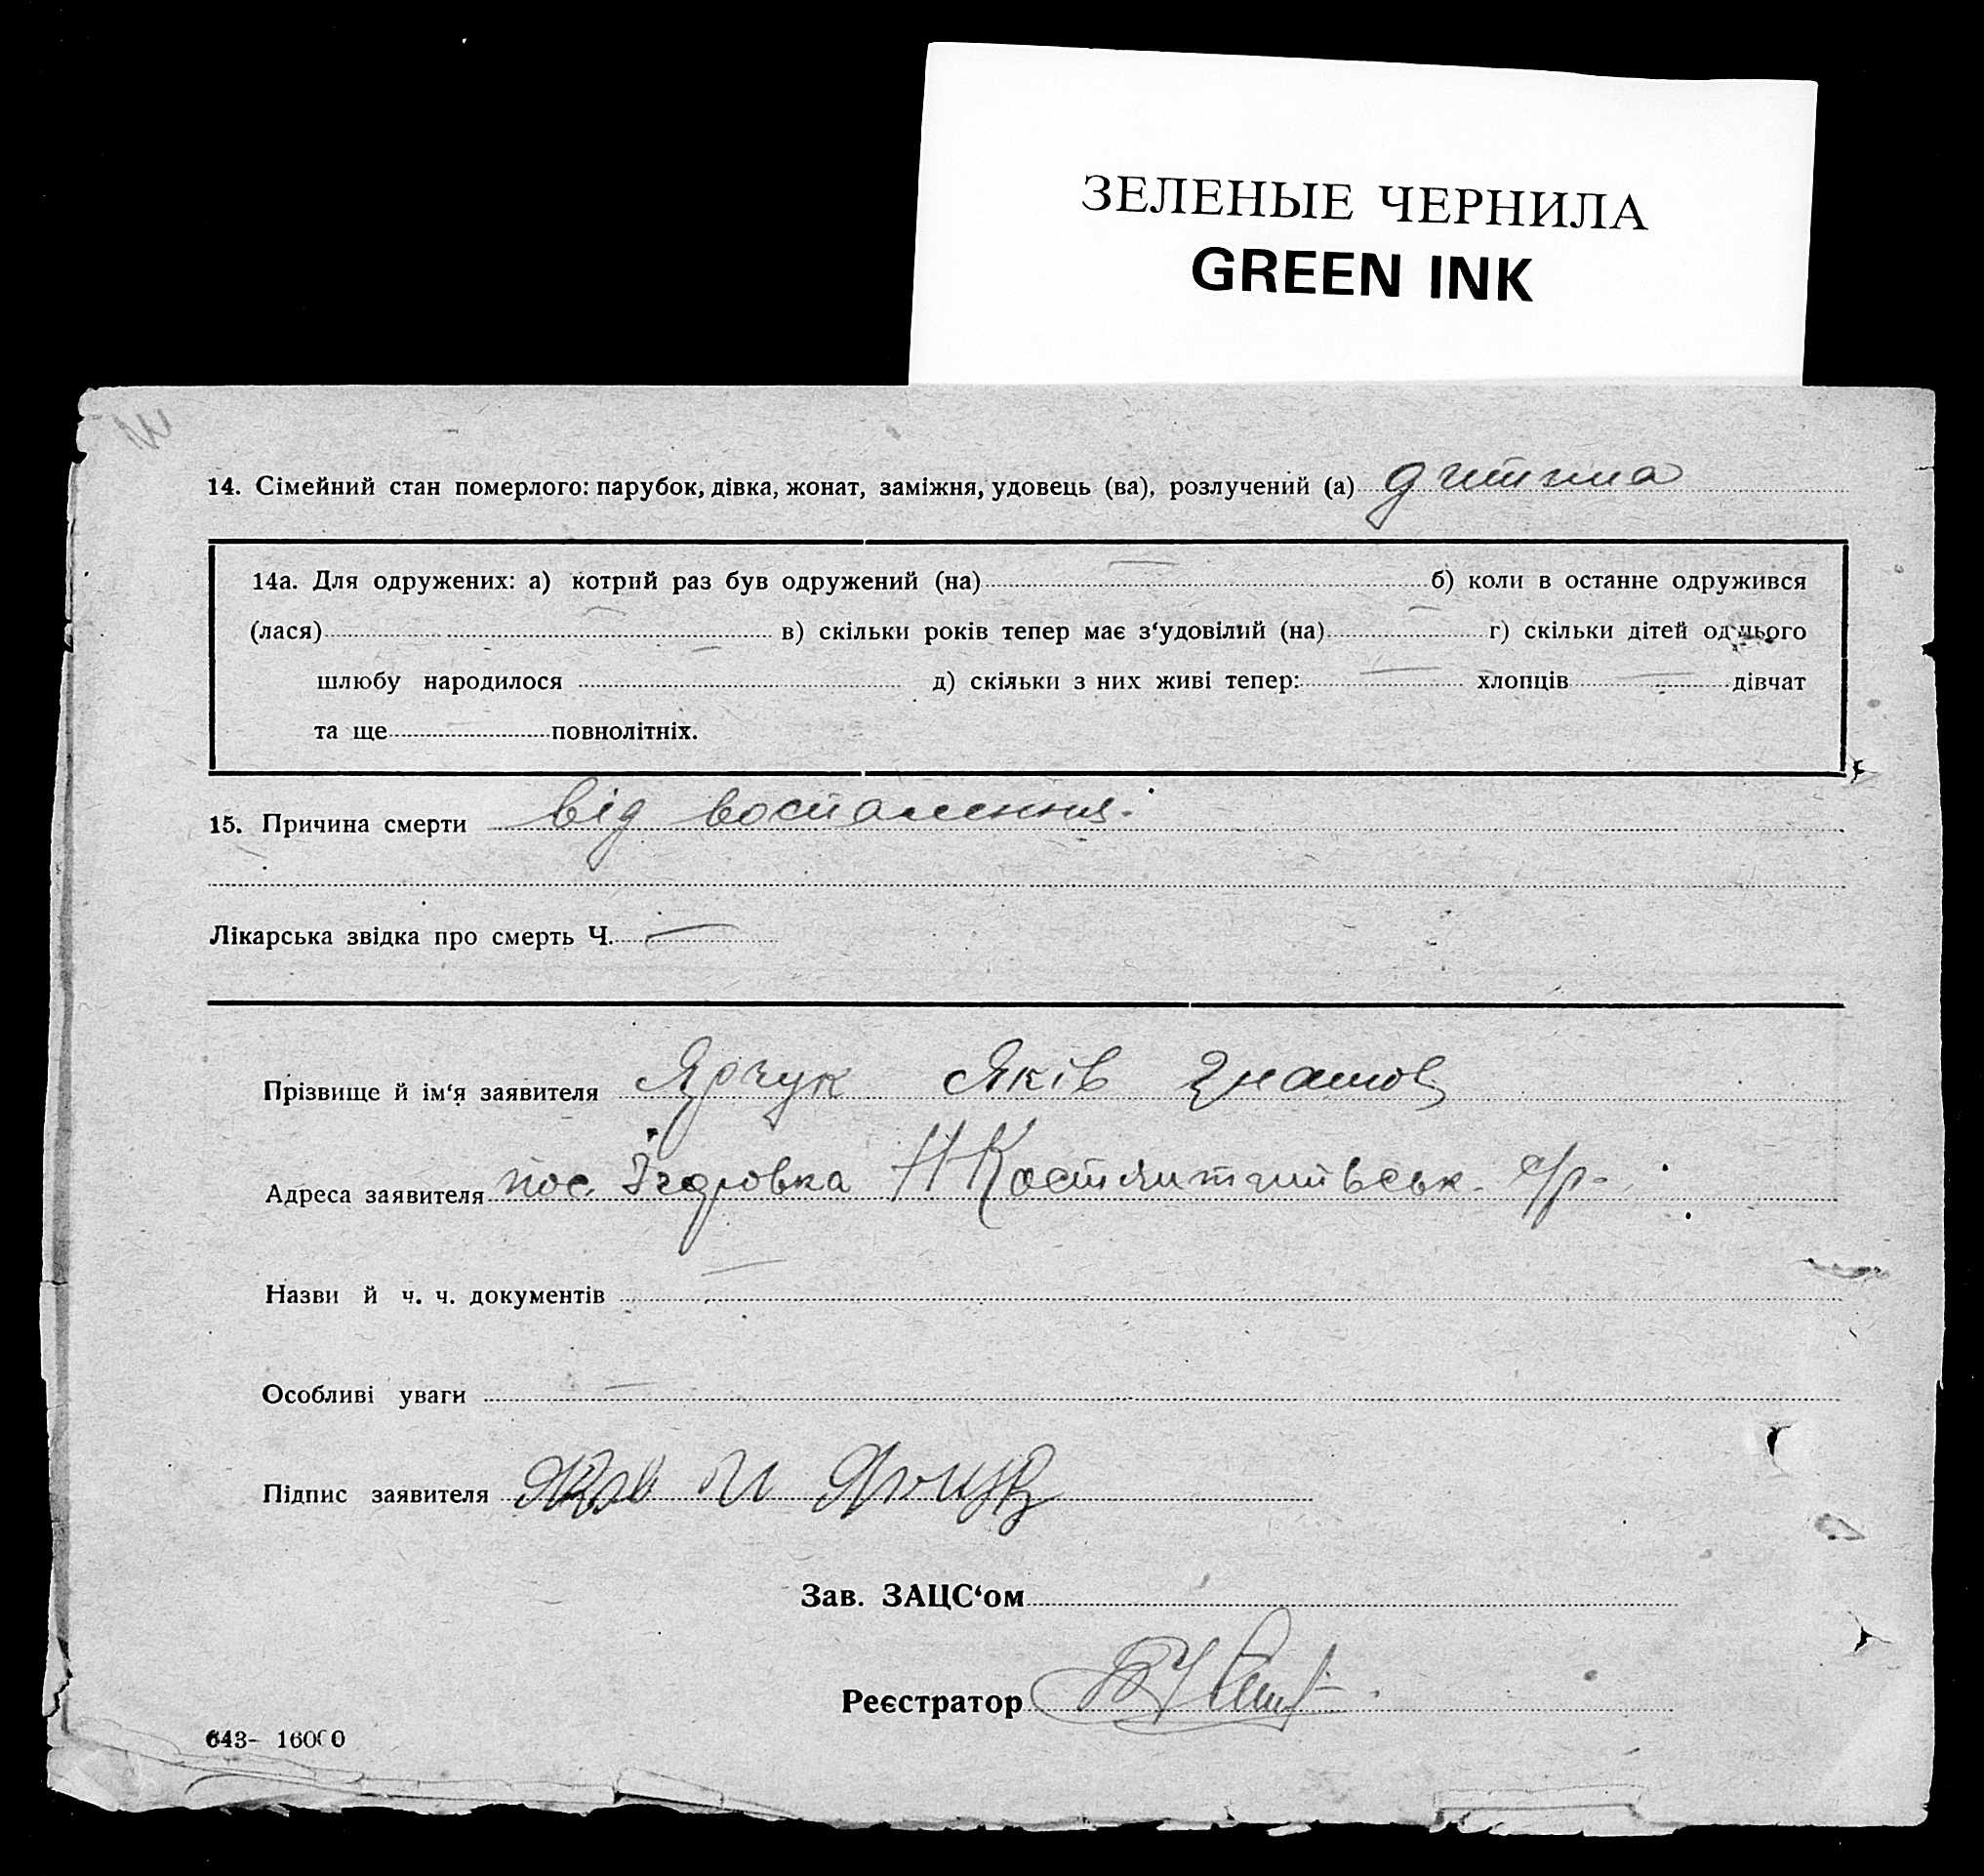 ЗЕЛЕНЫЕ ЧЕРНИЛА
GREEN INK
14. Сімейний стан померлого: парубок, дівка, жонат, заміжня, удовець (ва), розлучений (а) дитина
14а. Для одружених: а) котрий раз був одружений (на) б) коли в останнє одружився
(лася) в) скільки років тепер має з‘удовілий (на) г) скільки дітей од цього
шлюбу народилося д) скільки з них живі тепер: хлопців дівчат
та ще повнолітніх.
15. Причина смерти від воспалення.
Лікарська звідка про смерть Ч. —
Прізвище й ім‘я заявителя Ярчук Яків Гнатов
Адреса заявителя пос. Н Костянтинівськ. с/р.
Назви й ч. ч. документів —
Особливі уваги —
Підпис заявителя
Зав. ЗАЦС‘ом
Реєстратор
643- 16000